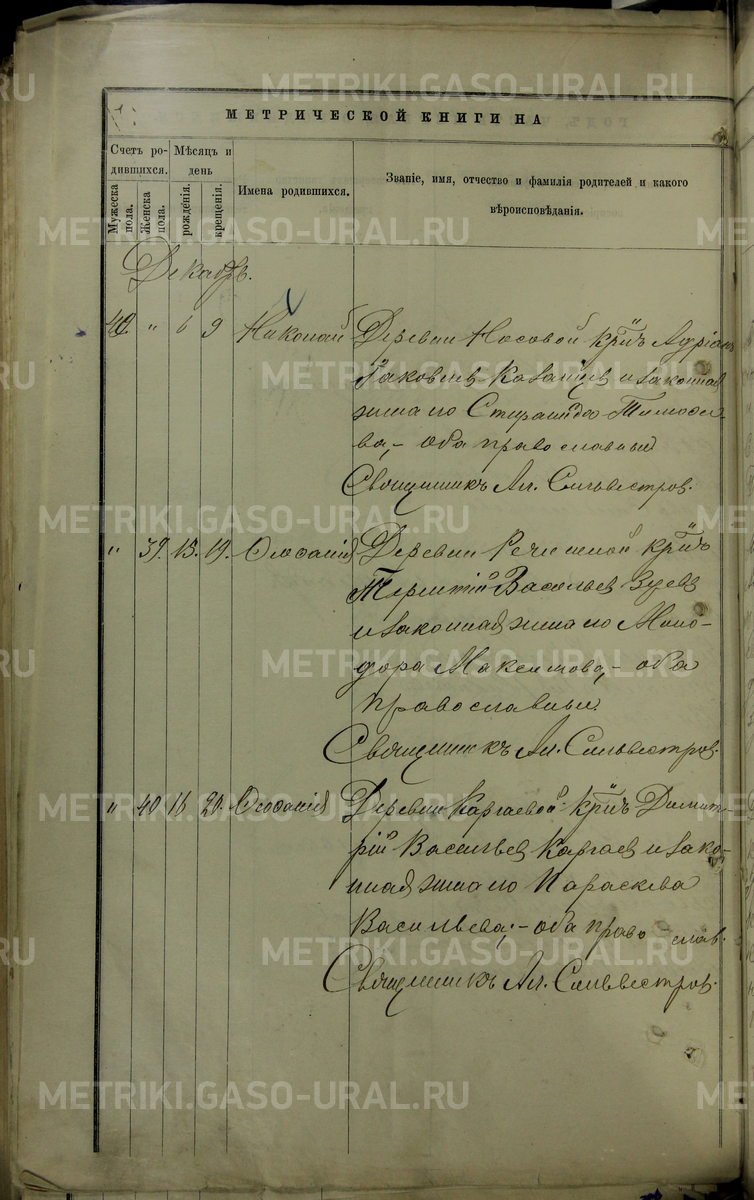 METRIKI.GASO-URAL.RU
МЕТРИЧЕСКОЙ КНИГИ НА
Счетъ ро-
дившихся.
Мужеска
пола.
Женска
пола.
Мѣсяцъ и
день
рожденія.
крещенія.
Имена родившихся.
Званіе, имя, отчество и фамилія родителей и какого
вѣроисповѣданія.
Декабрь.
40. " 6 9 Николай Деревни Носовой кр-нъ Адріанъ
Яковлевъ Казанцев и законная
жена его Степанида Тимофее-
ва,- оба православные
Священникъ Ал. Сильвестров.
" 39. 15. 19. Феофанія Деревни Речкиной кр-нъ
Терентій Васильев Зуевъ
и законная жена его Мино-
дора Максимова,- оба
православные
Священникъ Ал. Сильвестров.
" 40 16 21. Феофанія Деревни Каргаевой кр-нъ Димит-
рій Васильев Каргаев и зако-
нная жена его Параскева
Васильева,- оба право слав.
Священникъ Ал. Сильвестров.